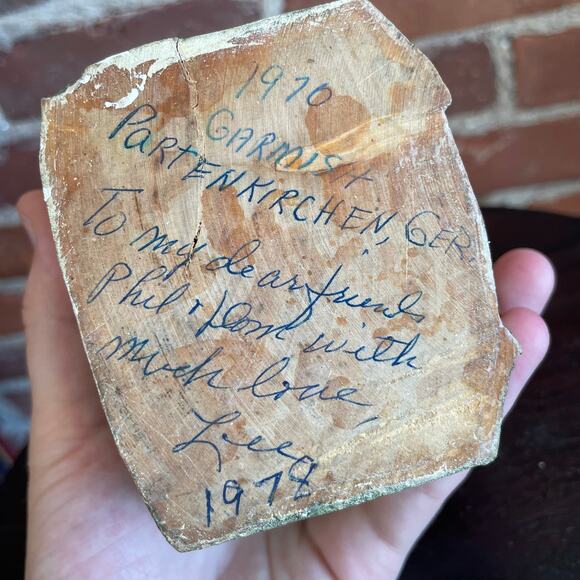 1970
GARMIST
PARTENKIRCHEN, GER.
To my dear friends
Phil + Dom with
much love,
1978